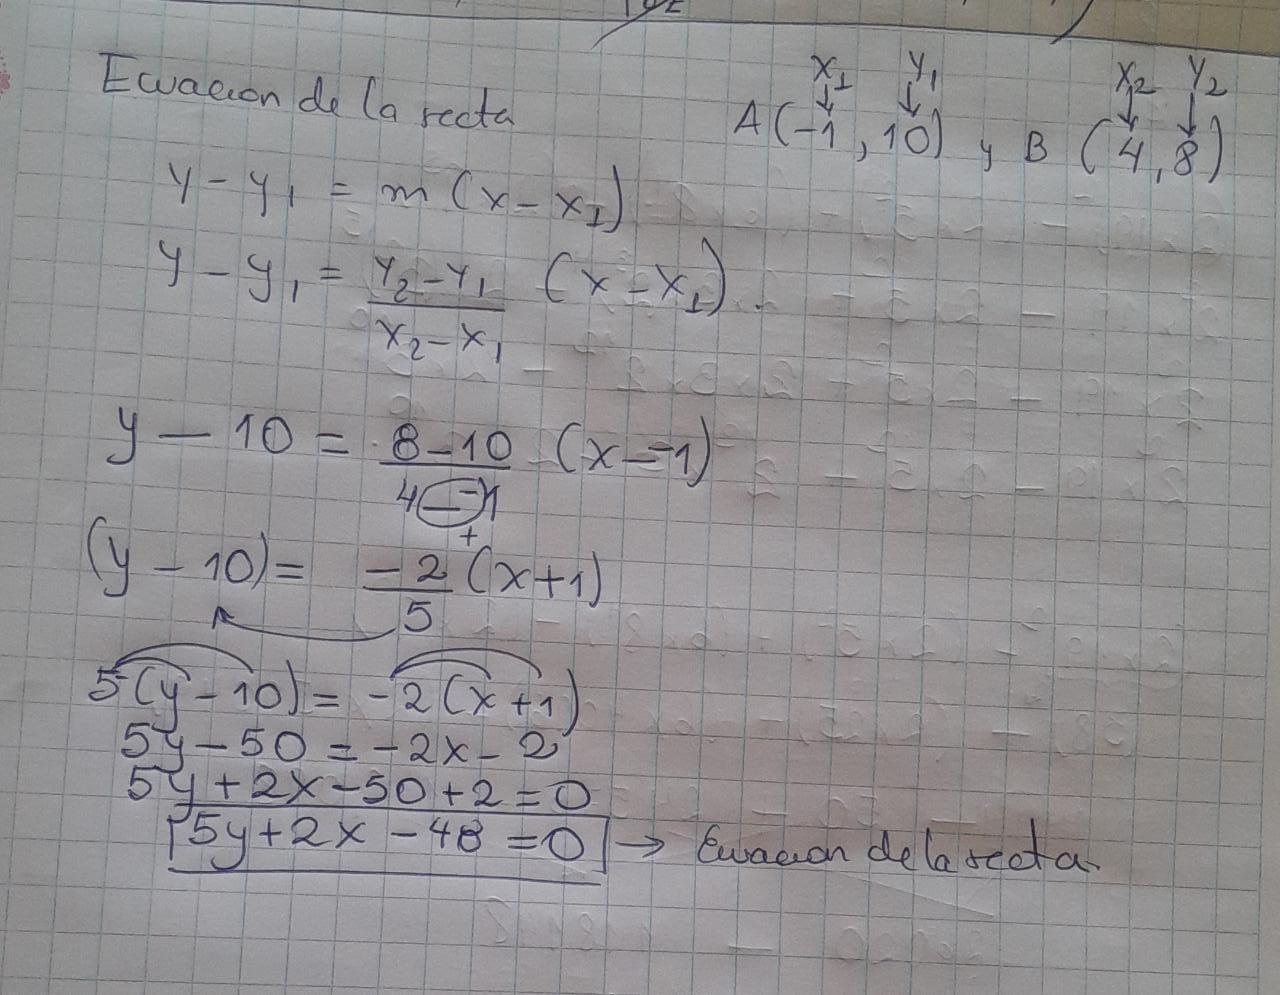 Ecuacion de la recta
x₁ y₁ x₂ y₂
A(-1, 10) y B (4, 8)
y - y₁ = m (x - x₁)
y - y₁ = y₂ - y₁ / x₂ - x₁ (x - x₁).
y - 10 = 8 - 10 / 4 - -1 (x - -1)
+
(y - 10) = -2 / 5 (x + 1)
5(y - 10) = -2(x + 1)
5y - 50 = -2x - 2
5y + 2x - 50 + 2 = 0
5y + 2x - 48 = 0 → Ecuacion de la recta